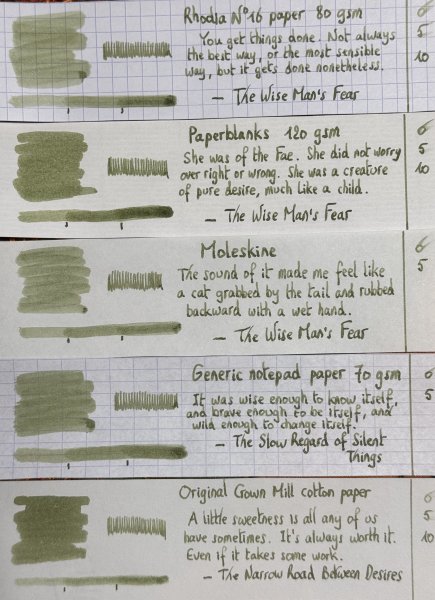 Rhodia N°16 paper 80 gsm
You get things done. Not always
the best way, or the most sensible
way, but it gets done nonetheless.
— The Wise Man's Fear
0
5
10
Paperblanks 120 gsm
She was of the Fae. She did not worry
over right or wrong. She was a creature
of pure desire, much like a child.
— The Wise Man's Fear
0
5
10
Moleskine
The sound of it made me feel like
a cat grabbed by the tail and rubbed
backward with a wet hand.
— The Wise Man's Fear
0
5
Generic notepad paper 70 gsm
It was wise enough to know itself,
and brave enough to be itself, and
wild enough to change itself.
— The Slow Regard of Silent
Things
0
5
Original Crown Mill cotton paper
A little sweetness is all any of us
have sometimes. It's always worth it.
Even if it takes some work.
— The Narrow Road Between Desires
0
5
10